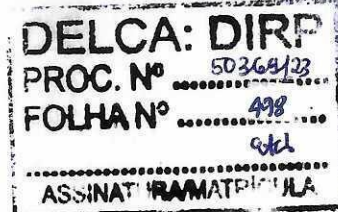 DELCA: DIRP
PROC. Nº 50365/23
FOLHA Nº 498
ASSINATURA/MATRÍCULA